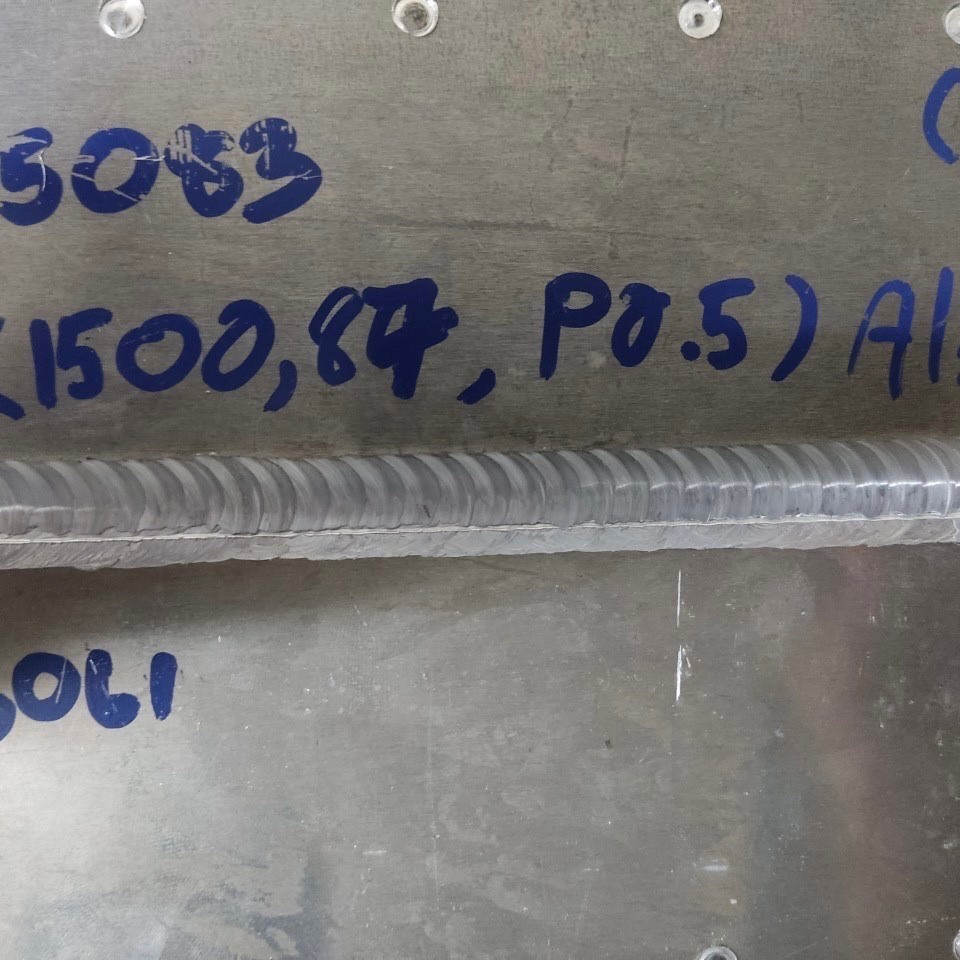 5083
(1500,84, P0.5) Al
061